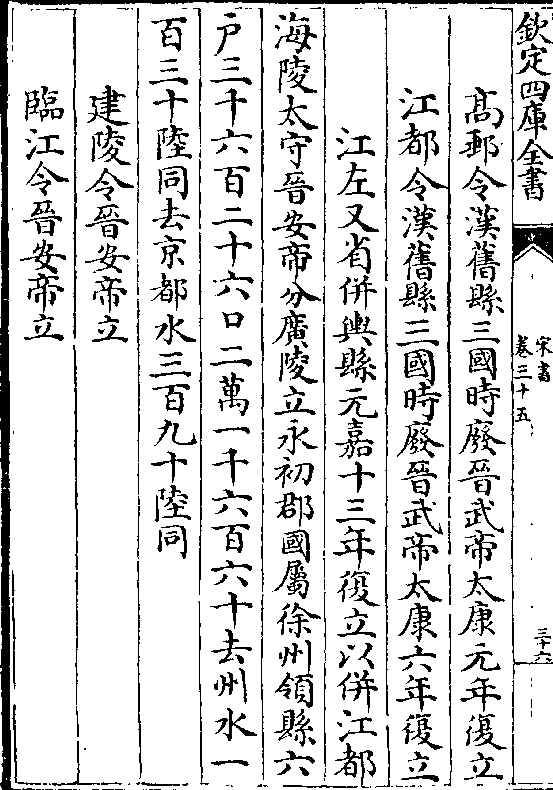 欽定四庫全書
宋書
卷三十五
三十六
高郵令漢舊縣三國時廢晉武帝太康元年復立
江都令漢舊縣三國時廢晉武帝太康六年復立
江左又省併輿縣元嘉十三年復立以併江都
海陵太守晉安帝分廣陵立永初郡國屬徐州領縣六
户三千六百二十六口二萬一千六百六十去州水一
百三十陸同去京都水三百九十陸同
建陵令晉安帝立
臨江令晉安帝立